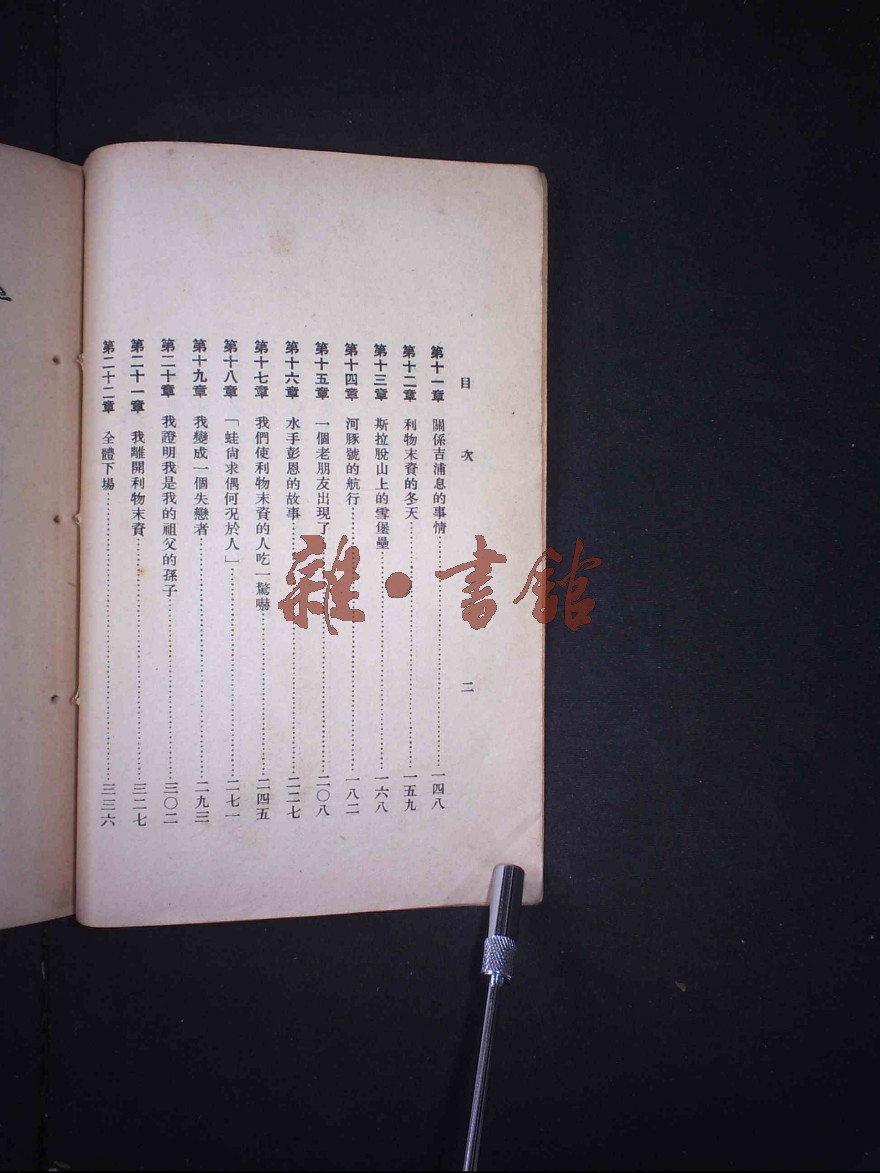 目次 二
第十一章 關係吉浦息的事情 一四八
第十二章 利物末資的冬天 一五九
第十三章 斯拉脫山上的雪堡壘 一六八
第十四章 河豚號的航行 一八二
第十五章 一個老朋友出現了 二〇八
第十六章 水手彭恩的故事 二二七
第十七章 我們使利物末資的人吃一驚嚇 二四五
第十八章 「蛙尙求偶何況於人」 二七一
第十九章 我變成一個失戀者 二九三
第二十章 我證明我是我的祖父的孫子 三〇二
第二十一章 我離開利物末資 三二七
第二十二章 全體下場 三三六
雜·書館